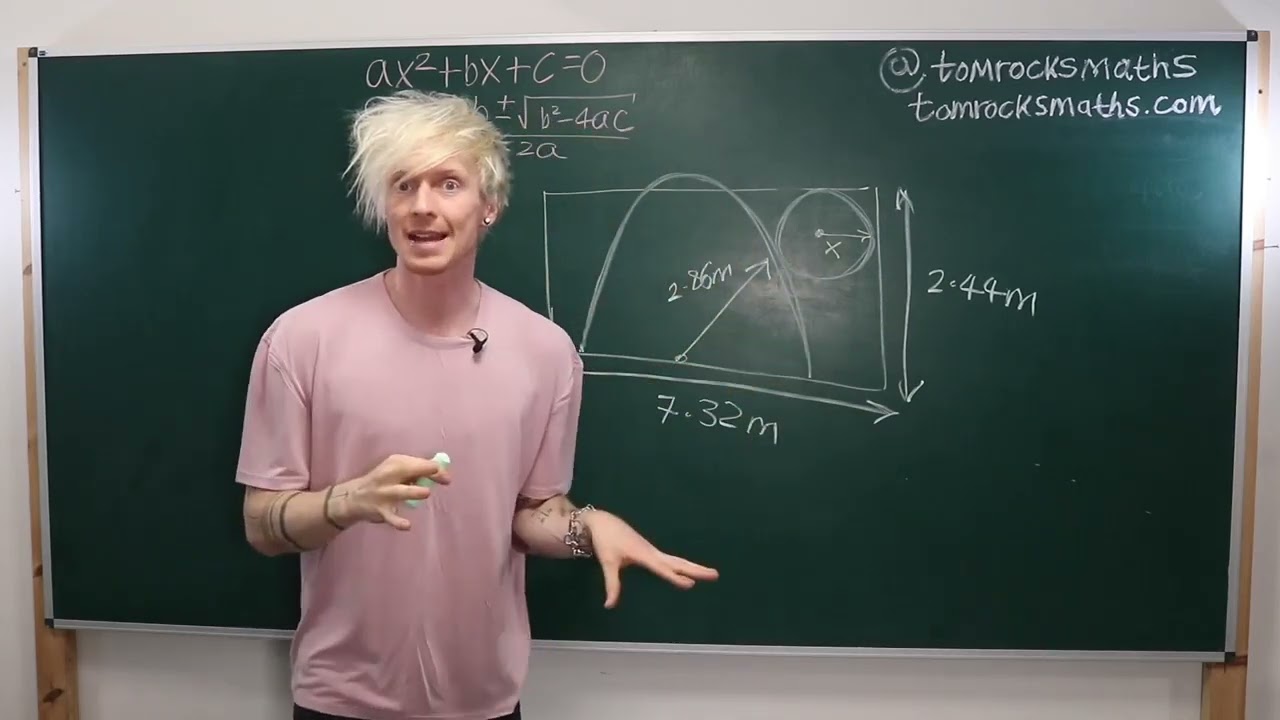 ax²+bx+c=0
± √b²-4ac
2a
@tomrocksmaths
tomrocksmaths.com
2.86m
x
2.44m
7.32m